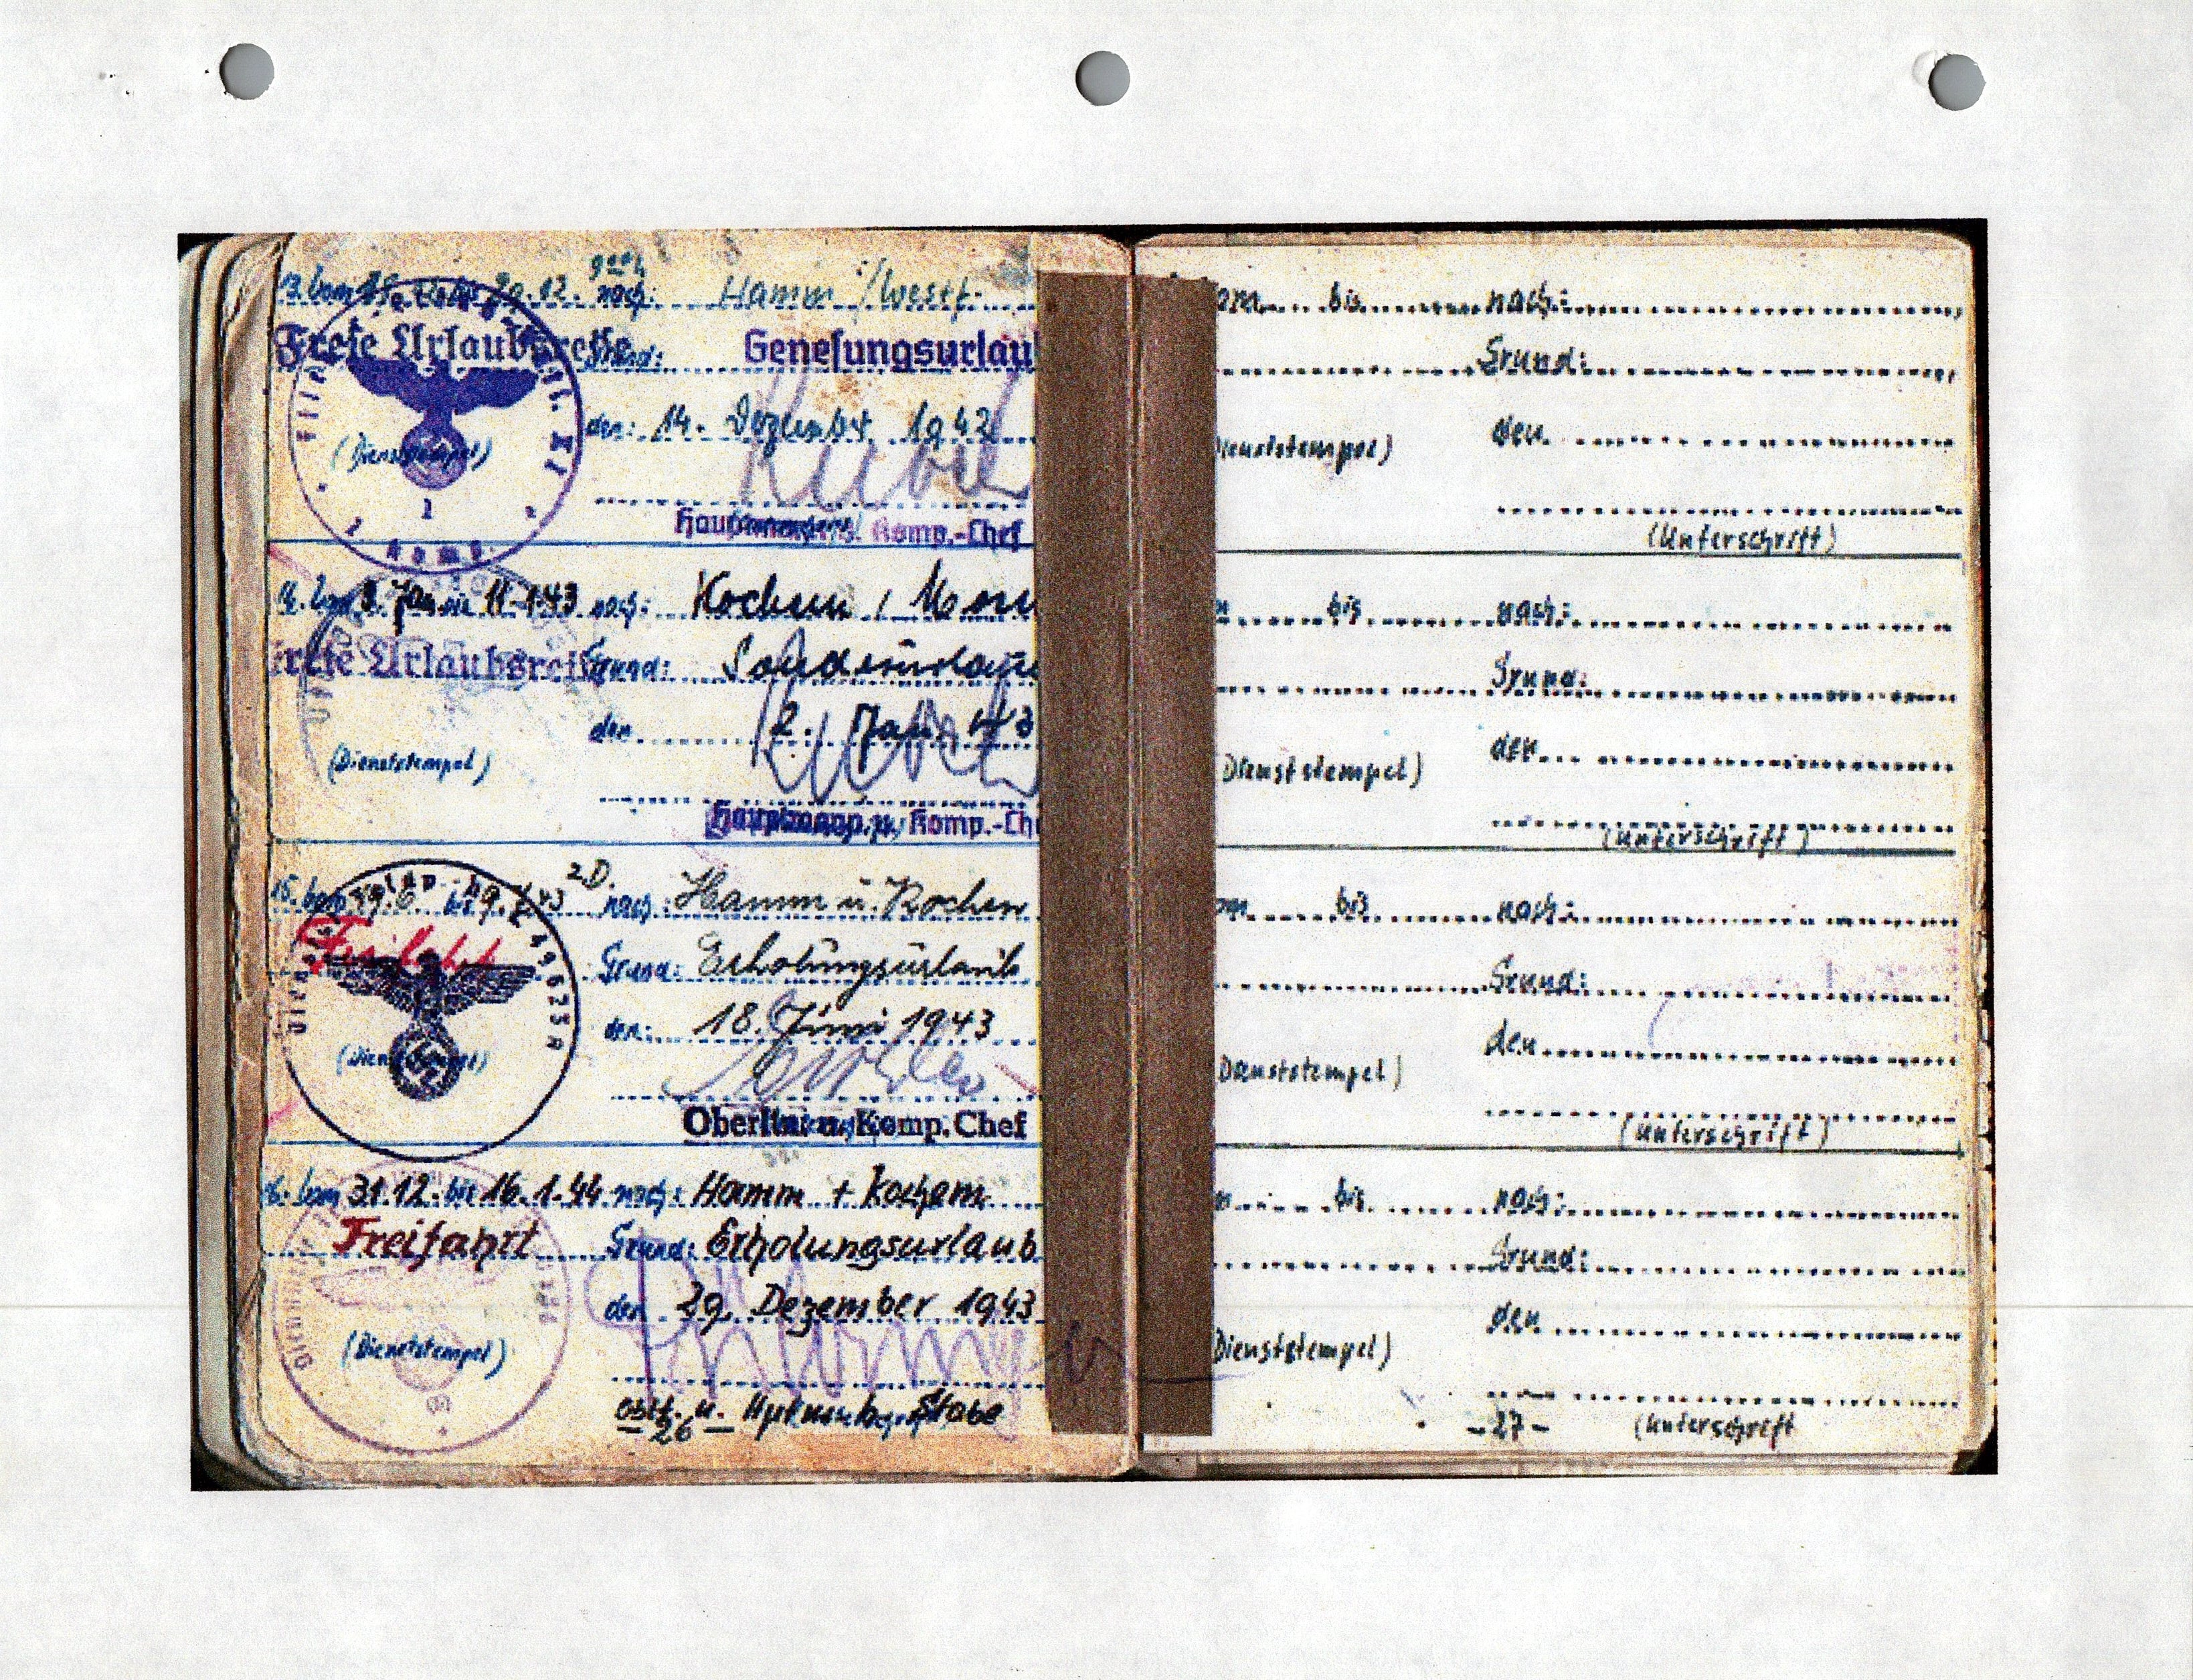 nach
13. vom 18. bis 30.12. nach: Hamm /Westf.
Freie Urlaubsreise Grund: Genesungsurlau
den: 14. Dezember 1942
(Dienststempel)
1
1 Komp.
Hauptmann u. Komp.-Chef
14. vom 3. Jan. bis 11.1.43 nach: Kochem / Mose
Freie Urlaubsreise Grund: Sonderurlau
den 2. Jan. 43
(Dienststempel)
Hauptmann u. Komp.-Che
2D.
15. vom 19.6. bis 9.7.43 nach: Hamm u. Kochem
Freifahrt Grund: Erholungsurlaub
den: 18. Juni 1943
(Dienststempel)
Oberltn. u. Komp. Chef
16. vom 31.12. bis 16.1.44 nach: Hamm + Kochem
Freifahrt Grund: Erholungsurlaub
den 29. Dezember 1943
(Dienststempel)
Oblt. u. Stabe
-26-
om bis nach:
Grund:
den
Dienststempel)
(Unterschrift)
bis nach:
Grund:
den
Dienststempel)
(Unterschrift)
om bis nach:
Grund:
den
Dienststempel)
(Unterschrift)
bis nach:
Grund:
den
Dienststempel)
-27- (Unterschrift